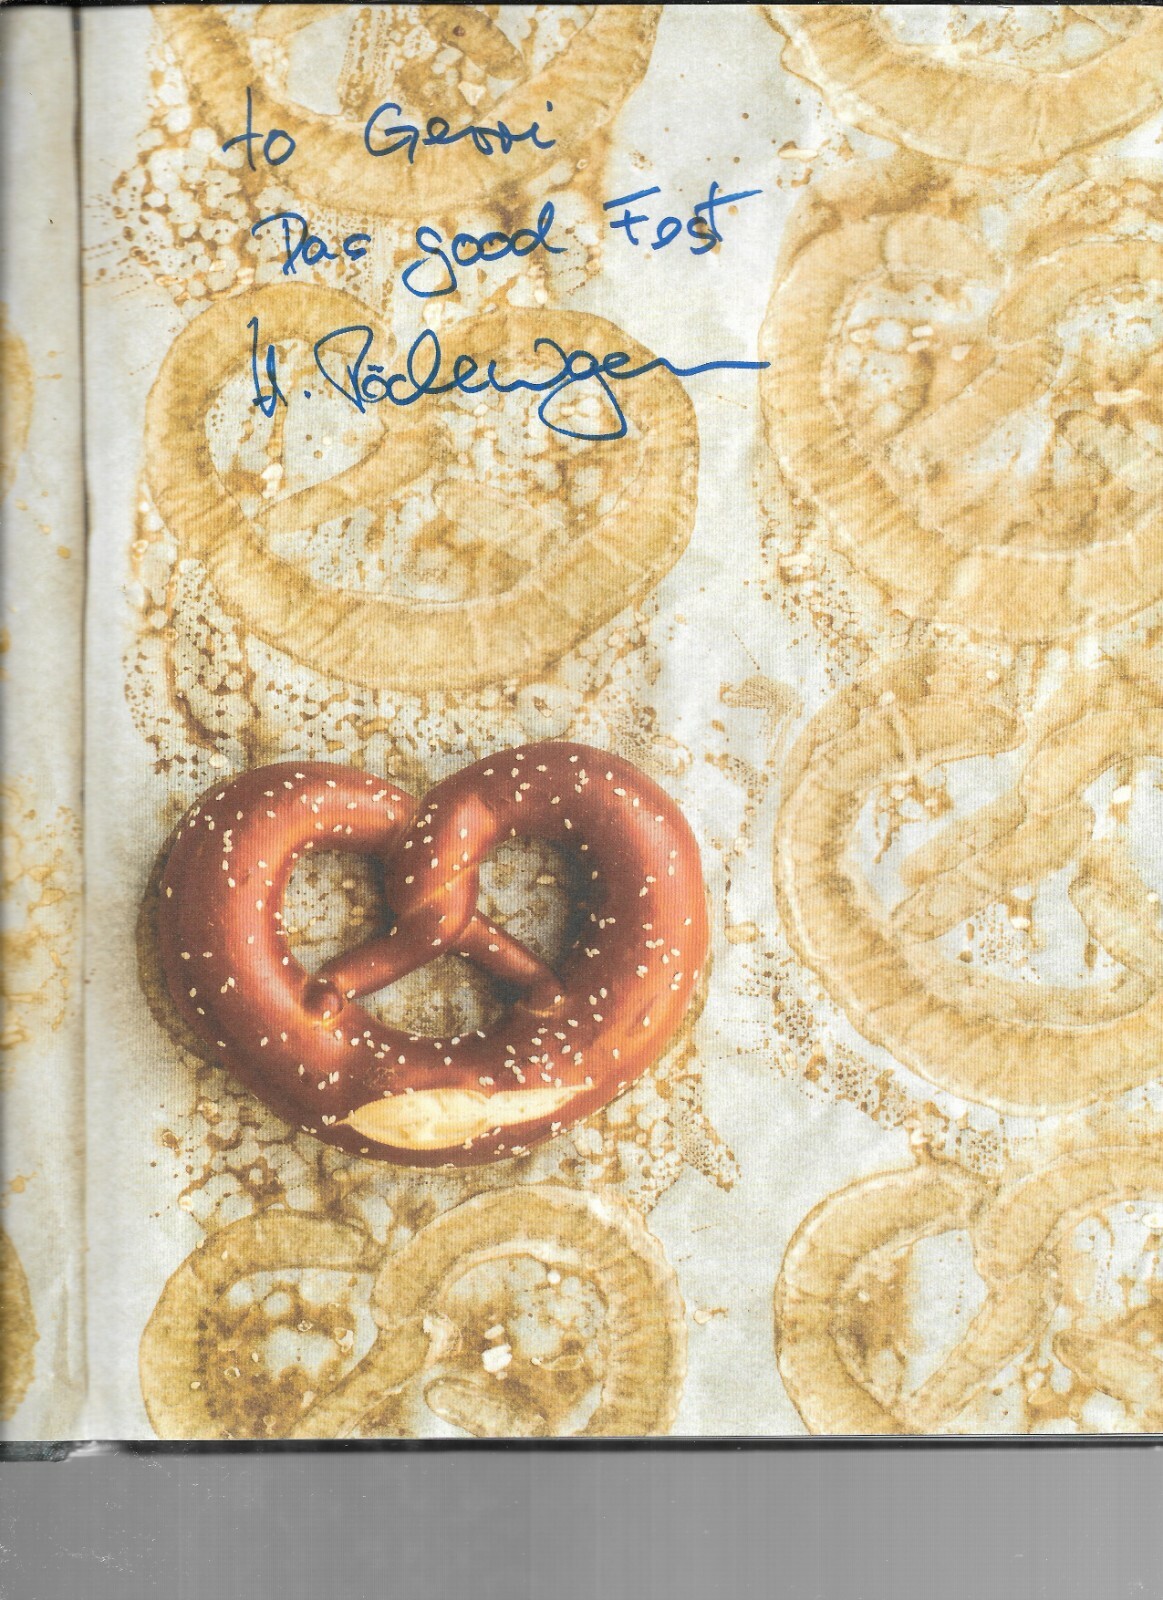 to Gerri
Das good Fest
H. Rödewagen